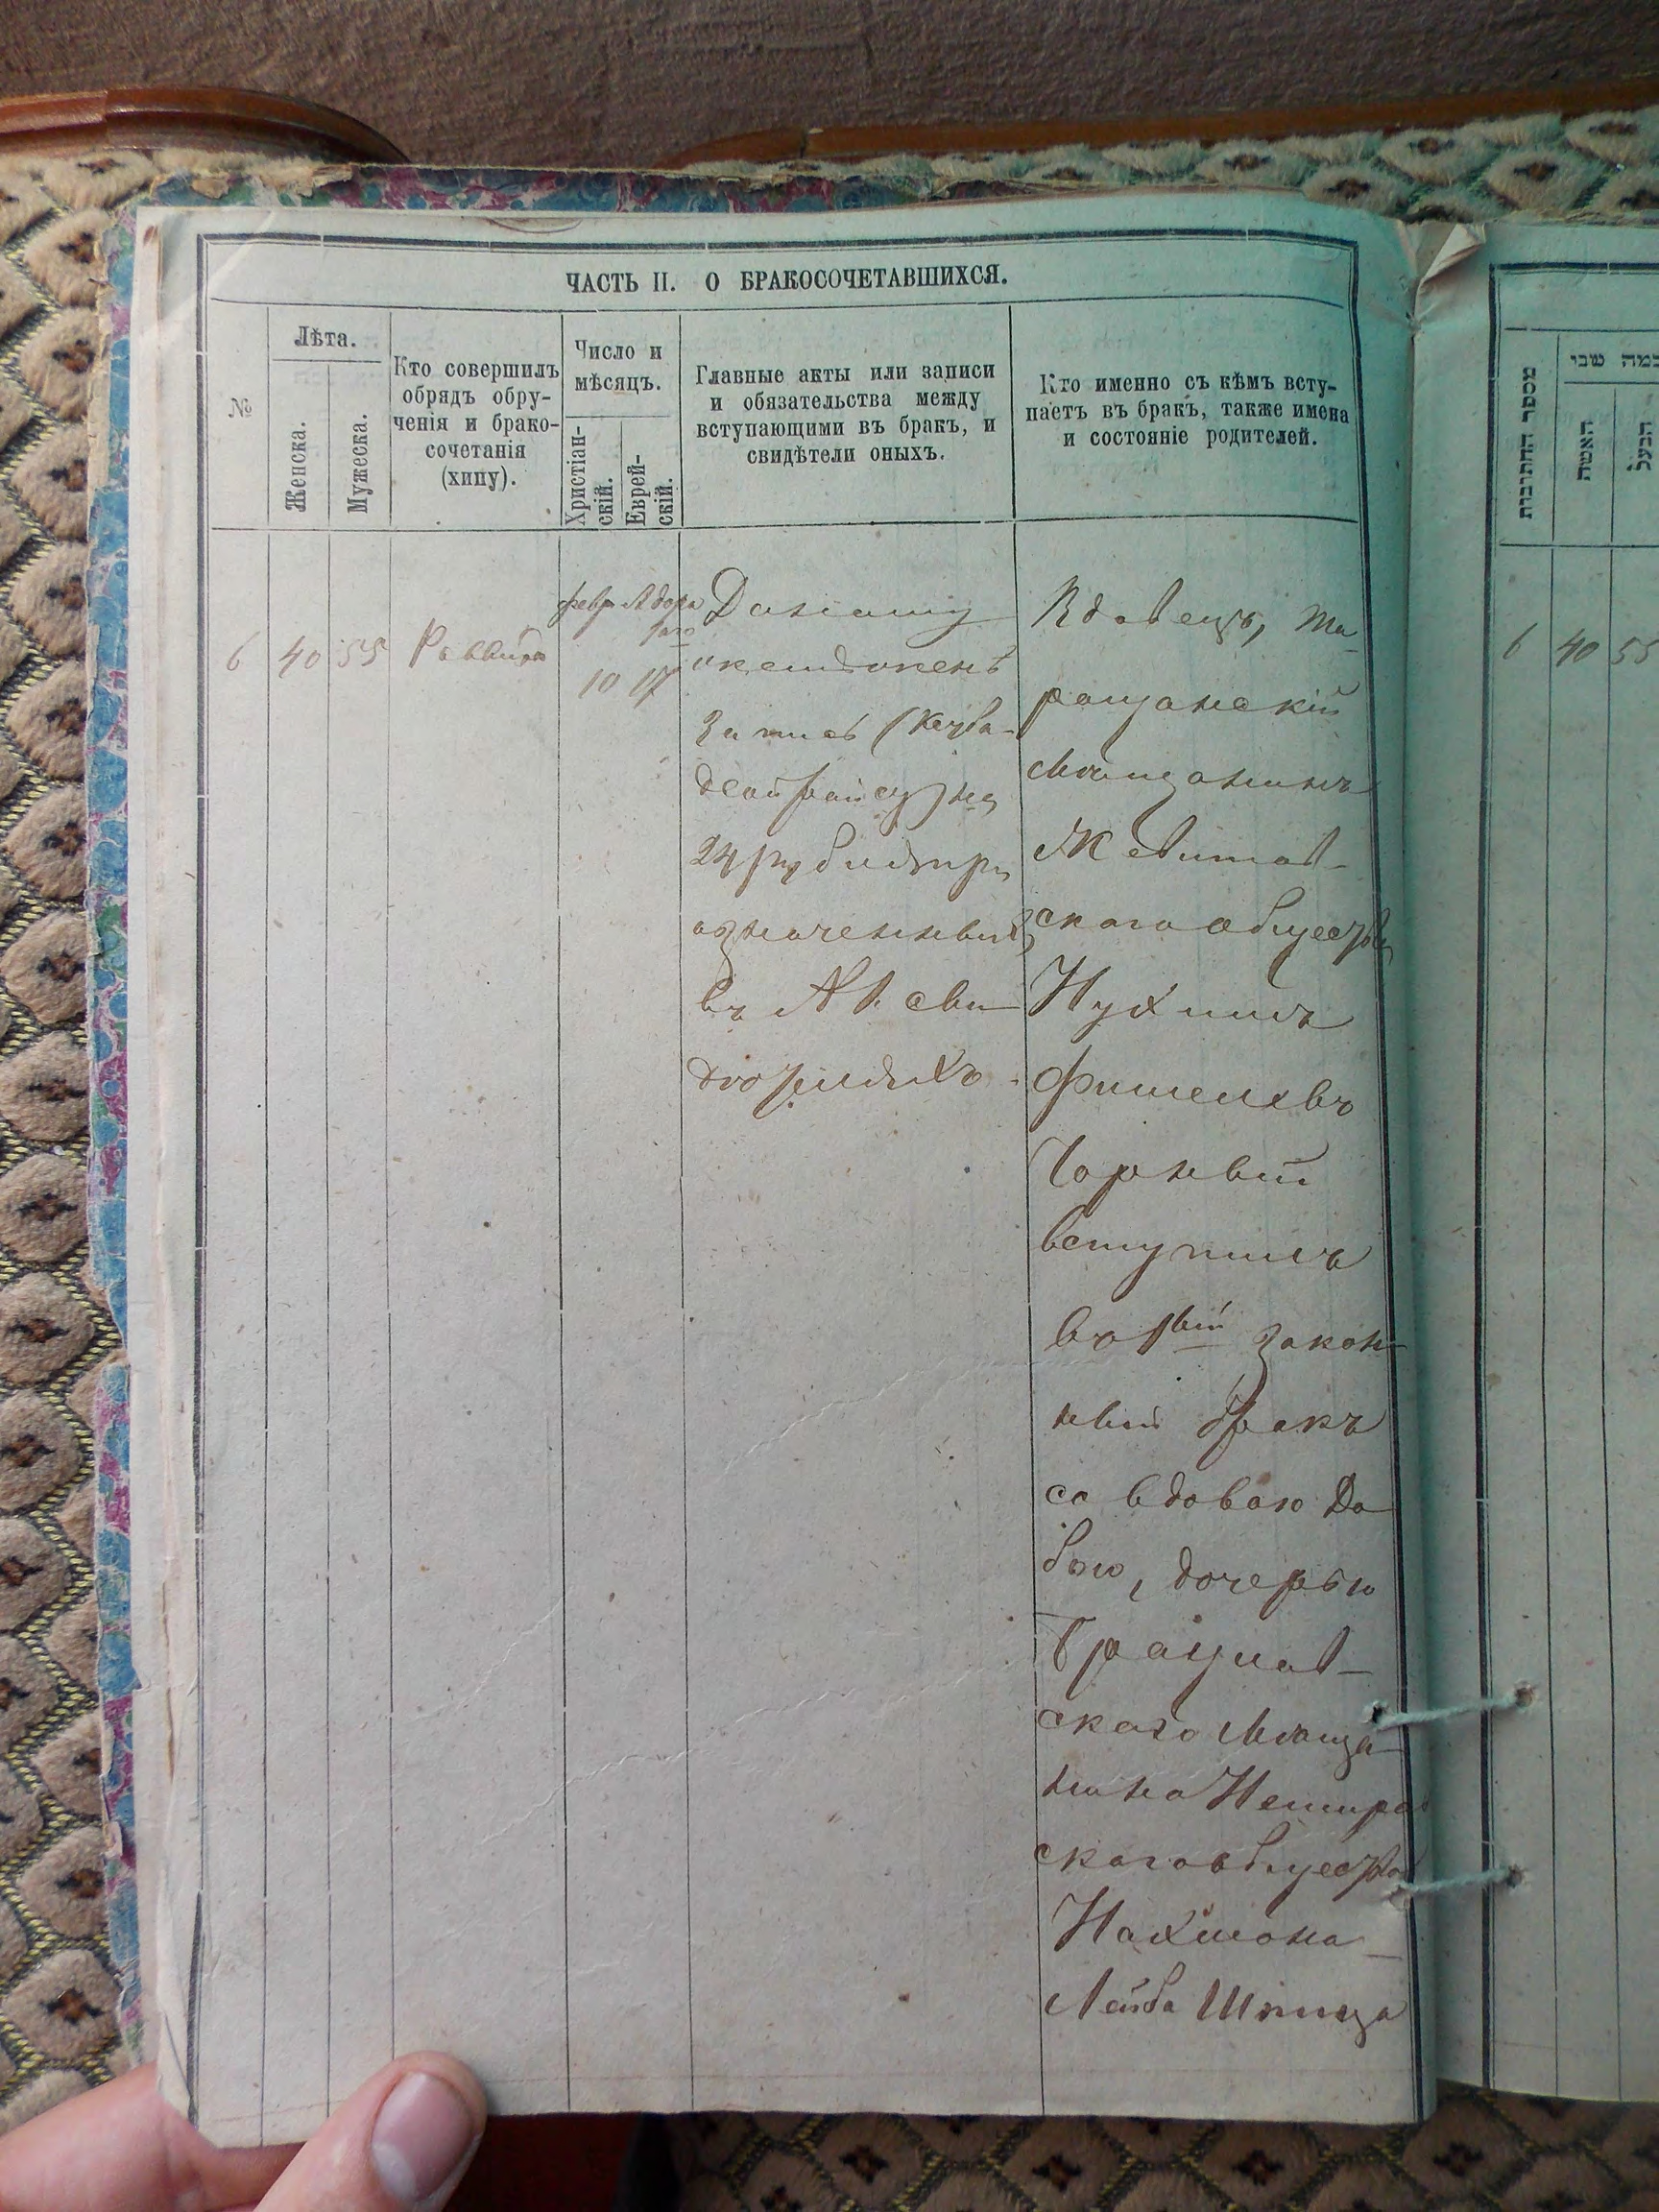 ЧАСТЬ II. О БРАКОСОЧЕТАВШИХСЯ.
№
Лѣта.
Женска.
Мужеска.
Кто совершилъ
обрядъ обру-
ченія и брако-
сочетанія
(хипу).
Число и
мѣсяцъ.
Христіан-
скій.
Еврей-
скій.
Главные акты или записи
и обязательства между
вступающими въ бракъ, и
свидѣтели оныхъ.
Кто именно съ кѣмъ всту-
паетъ въ бракъ, также имена
и состояніе родителей.
6
40
55
Раввинъ
февр Адора
10 17
запись (Кезба-
24 рубли при
означенныхъ
въ сви-
дѣтеляхъ.
Вдовецъ, Та-
ращанскій
Мѣщанинъ
Жевитов-
скаго общества
Нухимъ
Фишелевъ
Чорный
вступилъ
во 1вый закон-
ный бракъ
со вдовою До
бою, дочерью
Брацлав-
скаго Мѣща-
нина Немиров
скаго общества
Нахмона-
Лейба Шпица
מספר החתונות
כמה שני
האשה
הבעל
6
40
55